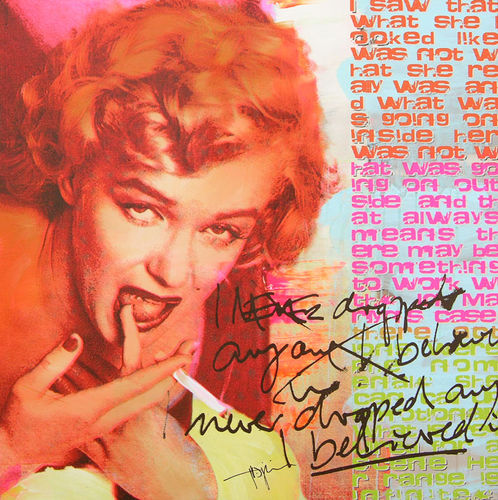 I saw that
what she l
ooked like
was not w
hat she re
ally was an
d what wa
s going on
inside her
was not w
hat was go
ing on out
side and th
at always
means th
ere may be
something
to work w
Ma
s case
nom
scene He
r range is
I NEVER dropped
anyone I believe
in
I never dropped any
I believed i